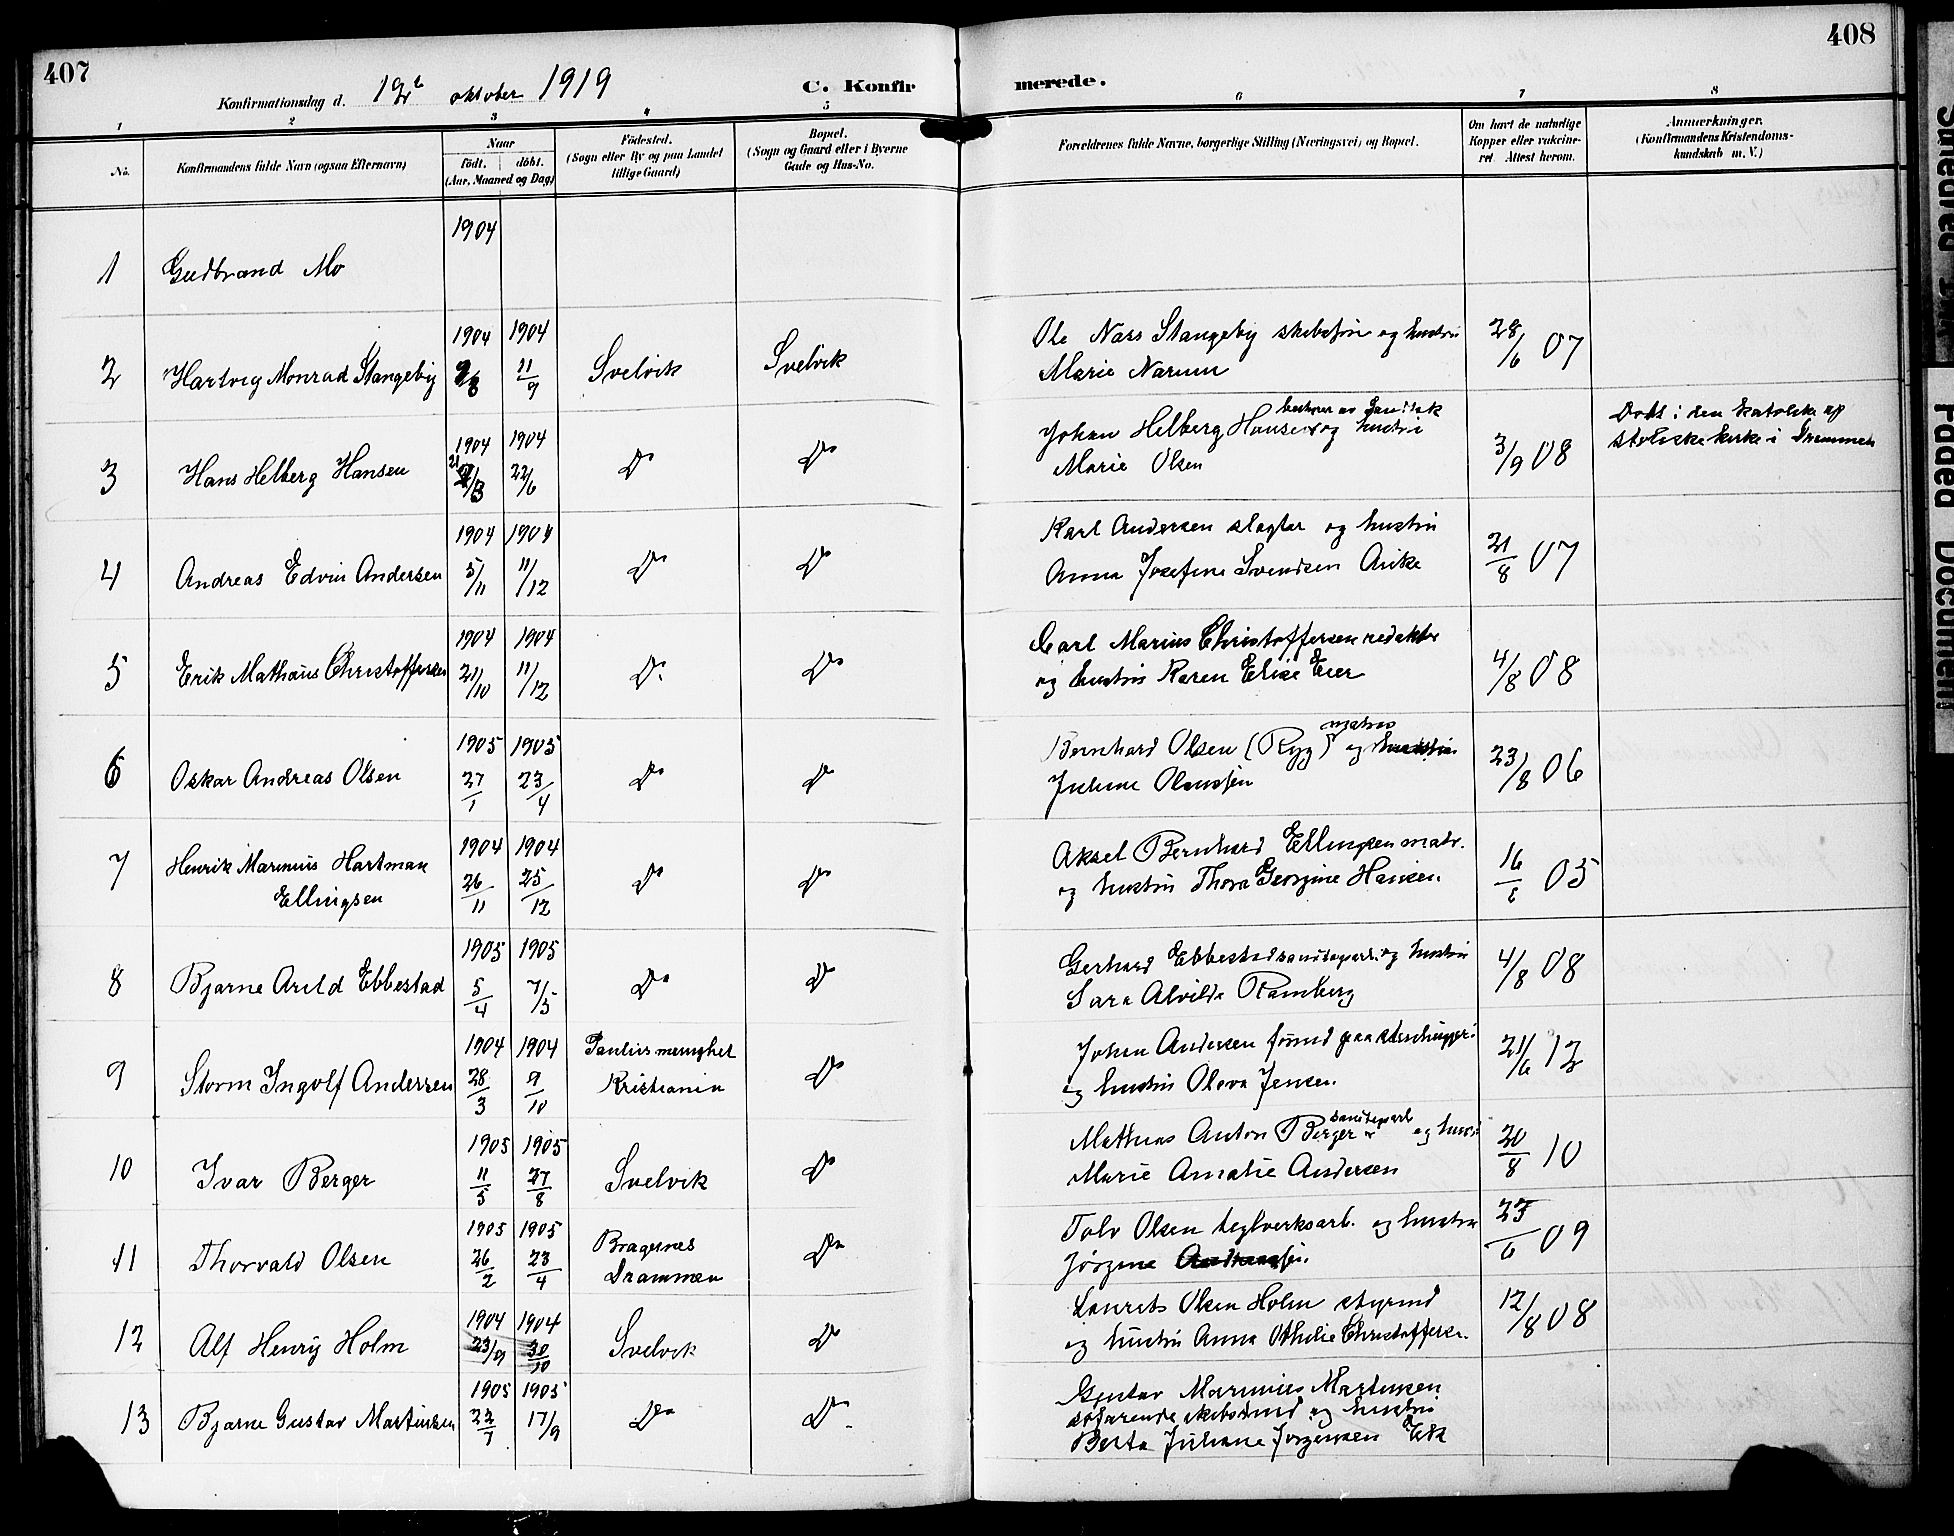 407
408
Konfirmationsdag d. oktober 1919
C. Konfirmerede.
1 2 3 4 5 6 7 8
No.
Konfirmandens fulde Navn (ogsaa Efternavn)
Naar
födt. döbt.
(Aar, Maaned og Dag)
Födested.
(Sogn eller By og paa Landet
tillige Gaard)
Bopæl.
(Sogn og Gaard eller i Byerne
Gade og Hus-No.
Forældrenes fulde Navne, borgerlige Stilling (Næringsvei) og Bopæl.
Om havt de naturlige
Kopper eller vakcine-
ret. Attest herom.
Anmærkninger.
(Konfirmandens Kristendoms-
kundskab m. V.)
1904
1 Gudbrand Mo
1904 1904
2 Hartvig Monrad Stangeby 11/9 Svelvik Svelvik
Ole Nass Stangeby og hustru
Marie Narum
28/6 07
1904 1904
3 Hans Helberg Hansen 22/6 Do Do
Johan Helberg Hansen og hustru
Marie Olsen
3/9 08
Døbt i den katolske
kirke i Drammen
1904 1904
4 Andreas Edvin Andersen 5/11 11/12 Do Do
Karl Andersen slagter og hustru
Anna Josefine Svendsen
21/8 07
1904 1904
5 Erik Mathæus Christoffersen 21/10 11/12 Do Do
Carl Marius Christoffersen redaktør
og hustru Karen Elise Eier
4/8 08
1905 1905
6 Oskar Andreas Olsen 27/1 23/4 Do Do
matros
Bernhard Olsen (Ryg) og hustru
23/8 06
1904 1904
7 Henrik Marinius Hartman
Ellingsen 26/11 25/12 Do Do
Aksel Bernhard Ellingsen matr.
og hustru Thora Georgine Hansen.
16/6 05
1905 1905
8 Bjarne Arild Ebbestad 5/4 7/5 Do Do
Gerhard Ebbestad sandtagarb. og hustru
Sara Alvilde Ramberg
4/8 08
1904 1904
9 Storm Ingolf Andersen 28/3 9/10
Paulus menighet
Kristiania Do
Johan Andersen
og hustru Olava Jensen.
21/6 12
1905 1905
10 Ivar Berger 11/5 27/8 Svelvik Do
sandtagarb
Mathias Anton Berger og hustru
Marie Amalie Andersen
20/8 10
1905 1905
11 Thorvald Olsen 26/2 23/4
Bragernes
Drammen Do
Tolv Olsen teglverksarb. og hustru
Jørgine
23/6 09
1904 1904
12 Alf Henry Holm 23/9 30/10 Svelvik Do
Laurits Olsen Holm styrmd
og hustru Anna Othilie Christoffersen.
12/8 08
1905 1905
13 Bjarne Gustav Martinsen 22/7 17/9 Do Do
Gustav Marinius Martinsen
og hustru
Berta Juliane Jørgensen Eik
Smeared
Faded Document